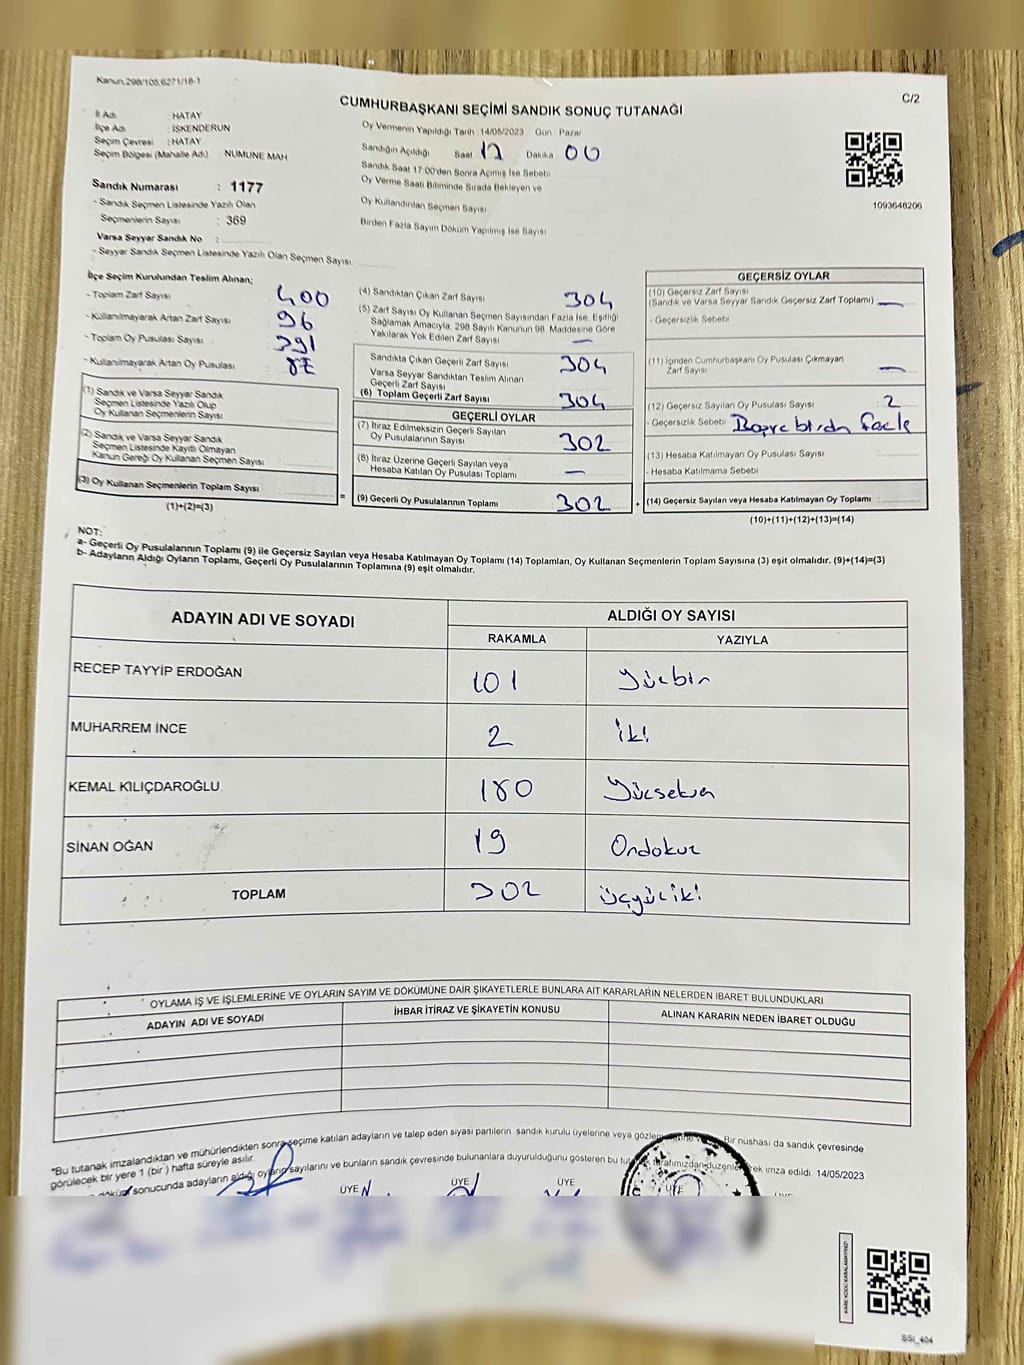 Kanun,298/105,6271/18-1
C/2
CUMHURBAŞKANI SEÇİMİ SANDIK SONUÇ TUTANAĞI
İl Adı : HATAY
İlçe Adı : İSKENDERUN
Seçim Çevresi : HATAY
Seçim Bölgesi (Mahalle Adı) : NUMUNE MAH
Sandık Numarası : 1177
- Sandık Seçmen Listesinde Yazılı Olan
Seçmenlerin Sayısı : 369
Varsa Seyyar Sandık No :
- Seyyar Sandık Seçmen Listesinde Yazılı Olan Seçmen Sayısı
Oy Vermenin Yapıldığı Tarih :14/05/2023 Gün : Pazar
Sandığın Açıldığı Saat 17 Dakika 00
Sandık Saat 17:00'den Sonra Açımış İse Sebebi
Oy Verme Saati Bitiminde Sırada Bekleyen ve
Oy Kullandırılan Seçmen Sayısı
Birden Fazla Sayım Döküm Yapılmış İse Sayısı
1093648206
İlçe Seçim Kurulundan Teslim Alınan;
- Toplam Zarf Sayısı : 400
- Kullanılmayarak Artan Zarf Sayısı : 96
- Toplam Oy Pusulası Sayısı : 391
- Kullanılmayarak Artan Oy Pusulası : 87
(1) Sandık ve Varsa Seyyar Sandık
Seçmen Listesinde Yazılı Olup
Oy Kullanan Seçmenlerin Sayısı :
(2) Sandık ve Varsa Seyyar Sandık
Seçmen Listesinde Kayıtlı Olmayan
Kanun Gereği Oy Kullanan Seçmen Sayısı :
(3) Oy Kullanan Seçmenlerin Toplam Sayısı :
(1)+(2)=(3)
(4) Sandıktan Çıkan Zarf Sayısı 304
(5) Zarf Sayısı Oy Kullanan Seçmen Sayısından Fazla İse, Eşitliği
Sağlamak Amacıyla, 298 Sayılı Kanunun 98. Maddesine Göre
Yakılarak Yok Edilen Zarf Sayısı : —
Sandıkta Çıkan Geçerli Zarf Sayısı 304
Varsa Seyyar Sandıktan Teslim Alınan
Geçerli Zarf Sayısı
(6) Toplam Geçerli Zarf Sayısı 304
GEÇERLİ OYLAR
(7) İtiraz Edilmeksizin Geçerli Sayılan
Oy Pusulalarının Sayısı 302
(8) İtiraz Üzerine Geçerli Sayılan veya
Hesaba Katılan Oy Pusulası Toplamı —
= (9) Geçerli Oy Pusulalarının Toplamı 302 +
GEÇERSİZ OYLAR
(10) Geçersiz Zarf Sayısı
(Sandık ve Varsa Seyyar Sandık Geçersiz Zarf Toplamı) —
- Geçersizlik Sebebi :
(11) İçinden Cumhurbaşkanı Oy Pusulası Çıkmayan
Zarf Sayısı : —
(12) Geçersiz Sayılan Oy Pusulası Sayısı : 2
- Geçersizlik Sebebi : birden
(13) Hesaba Katılmayan Oy Pusulası Sayısı :
- Hesaba Katılmama Sebebi :
(14) Geçersiz Sayılan veya Hesaba Katılmayan Oy Toplamı :
(10)+(11)+(12)+(13)=(14)
NOT:
a- Geçerli Oy Pusulalarının Toplamı (9) ile Geçersiz Sayılan veya Hesaba Katılmayan Oy Toplamı (14) Toplamları, Oy Kullanan Seçmenlerin Toplam Sayısına (3) eşit olmalıdır. (9)+(14)=(3)
b- Adayların Aldığı Oyların Toplamı, Geçerli Oy Pusulalarının Toplamına (9) eşit olmalıdır.
ADAYIN ADI VE SOYADI ALDIĞI OY SAYISI
RAKAMLA YAZIYLA
RECEP TAYYİP ERDOĞAN 101 Yüzbir
MUHARREM İNCE 2 iki
KEMAL KILIÇDAROĞLU 180 Yüzseksen
SİNAN OĞAN 19 Ondokuz
TOPLAM 302 üçyüziki
OYLAMA İŞ VE İŞLEMLERİNE VE OYLARIN SAYIM VE DÖKÜMÜNE DAİR ŞİKAYETLERLE BUNLARA AİT KARARLARIN NELERDEN İBARET BULUNDUKLARI
ADAYIN ADI VE SOYADI İHBAR İTİRAZ VE ŞİKAYETİN KONUSU ALINAN KARARIN NEDEN İBARET OLDUĞU
"Bu tutanak imzalandıktan ve mühürlendikten sonra seçime katılan adayların ve talep eden siyasi partilerin sandık kurulu üyelerine veya Bir nüshası da sandık çevresinde
görülecek bir yere 1 (bir ) hafta süreyle asılır.
sonucunda adayların aldığı oyların sayılarını ve bunların sandık çevresinde bulunanlara duyurulduğunu gösteren bu imza edildi. 14/05/2023
ÜYE ÜYE ÜYE ÜYE
SSİ_404